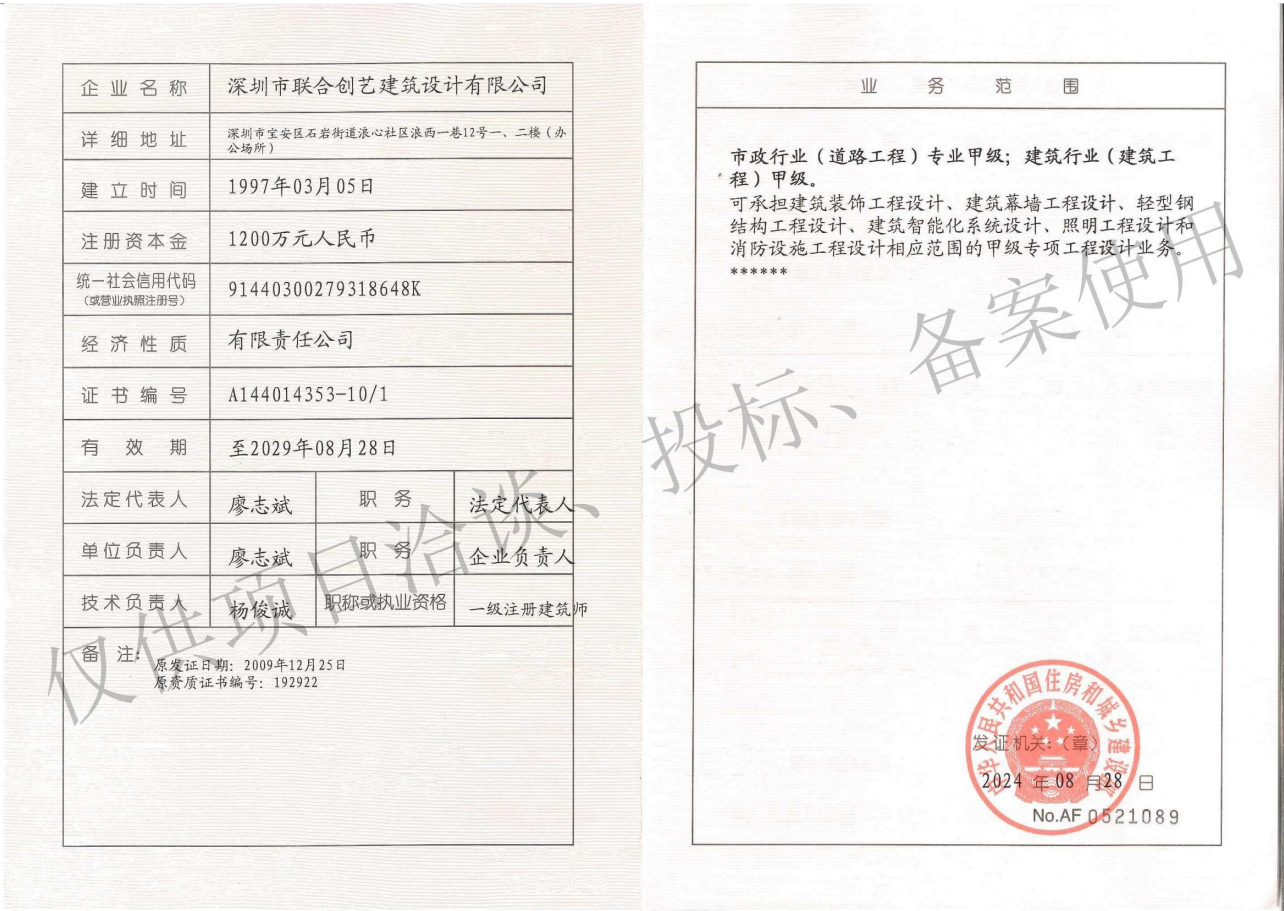 企业名称 深圳市联合创艺建筑设计有限公司
详细地址 深圳市宝安区石岩街道浪心社区浪西一巷12号一、二楼（办
公场所）
建立时间 1997年03月05日
注册资本金 1200万元人民币
统一社会信用代码
（或营业执照注册号） 91440300279318648K
经济性质 有限责任公司
证书编号 A144014353-10/1
有效期 至2029年08月28日
法定代表人 廖志斌 职务 法定代表人
单位负责人 廖志斌 职务 企业负责人
技术负责人 杨俊诚 职称或执业资格 一级注册建筑师
备注：
原发证日期：2009年12月25日
原资质证书编号：192922
业务范围
市政行业（道路工程）专业甲级；建筑行业（建筑工
程）甲级。
可承担建筑装饰工程设计、建筑幕墙工程设计、轻型钢
结构工程设计、建筑智能化系统设计、照明工程设计和
消防设施工程设计相应范围的甲级专项工程设计业务。
******
中华人民共和国住房和城乡建设部
发证机关：（章）
2024年08月28日
No.AF 0521089
仅供项目洽谈、投标、备案使用